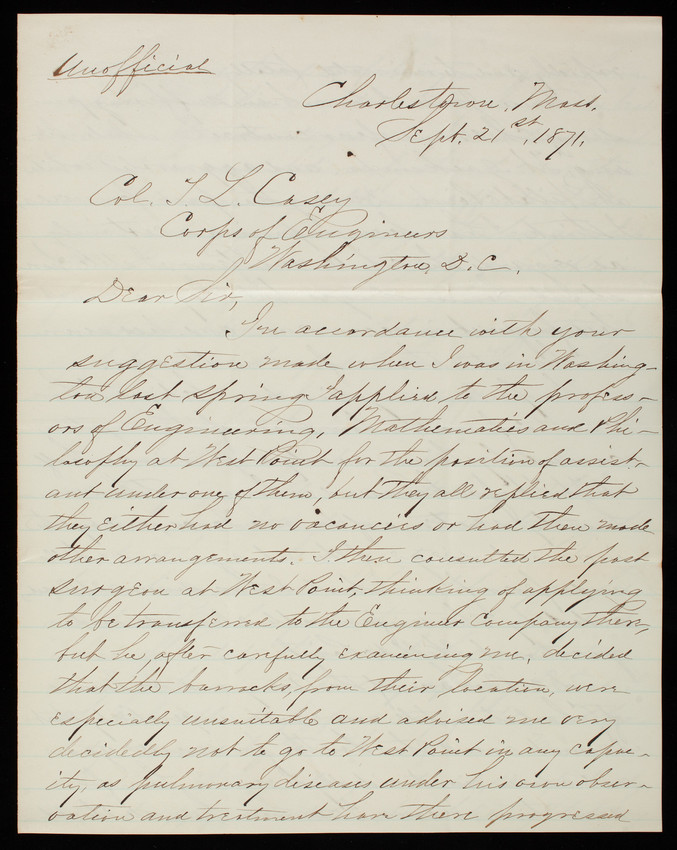 Unofficial
Charlestown, Mass.
Sept. 21st, 1871.
Col. T. L. Casey
Corps of Engineers
Washington, D.C.
Dear Sir,
In accordance with your
suggestion made when I was in Washing-
ton last spring I applied to the profess-
ors of Engineering, Mathematics and Phi-
losophy at West Point for the position of assist-
ant under one of them, but they all replied that
they either had no vacancies or had then made
other arrangements. I then consulted the post
surgeon at West Point, thinking of applying
to be transferred to the Engineer Company there,
but he, after carefully examining me, decided
that the barracks, from their location, were
especially unsuitable and advised me very
decidedly not to go to West Point in any capac-
ity, as pulmonary diseases under his own obser-
vation and treatment have there progressed